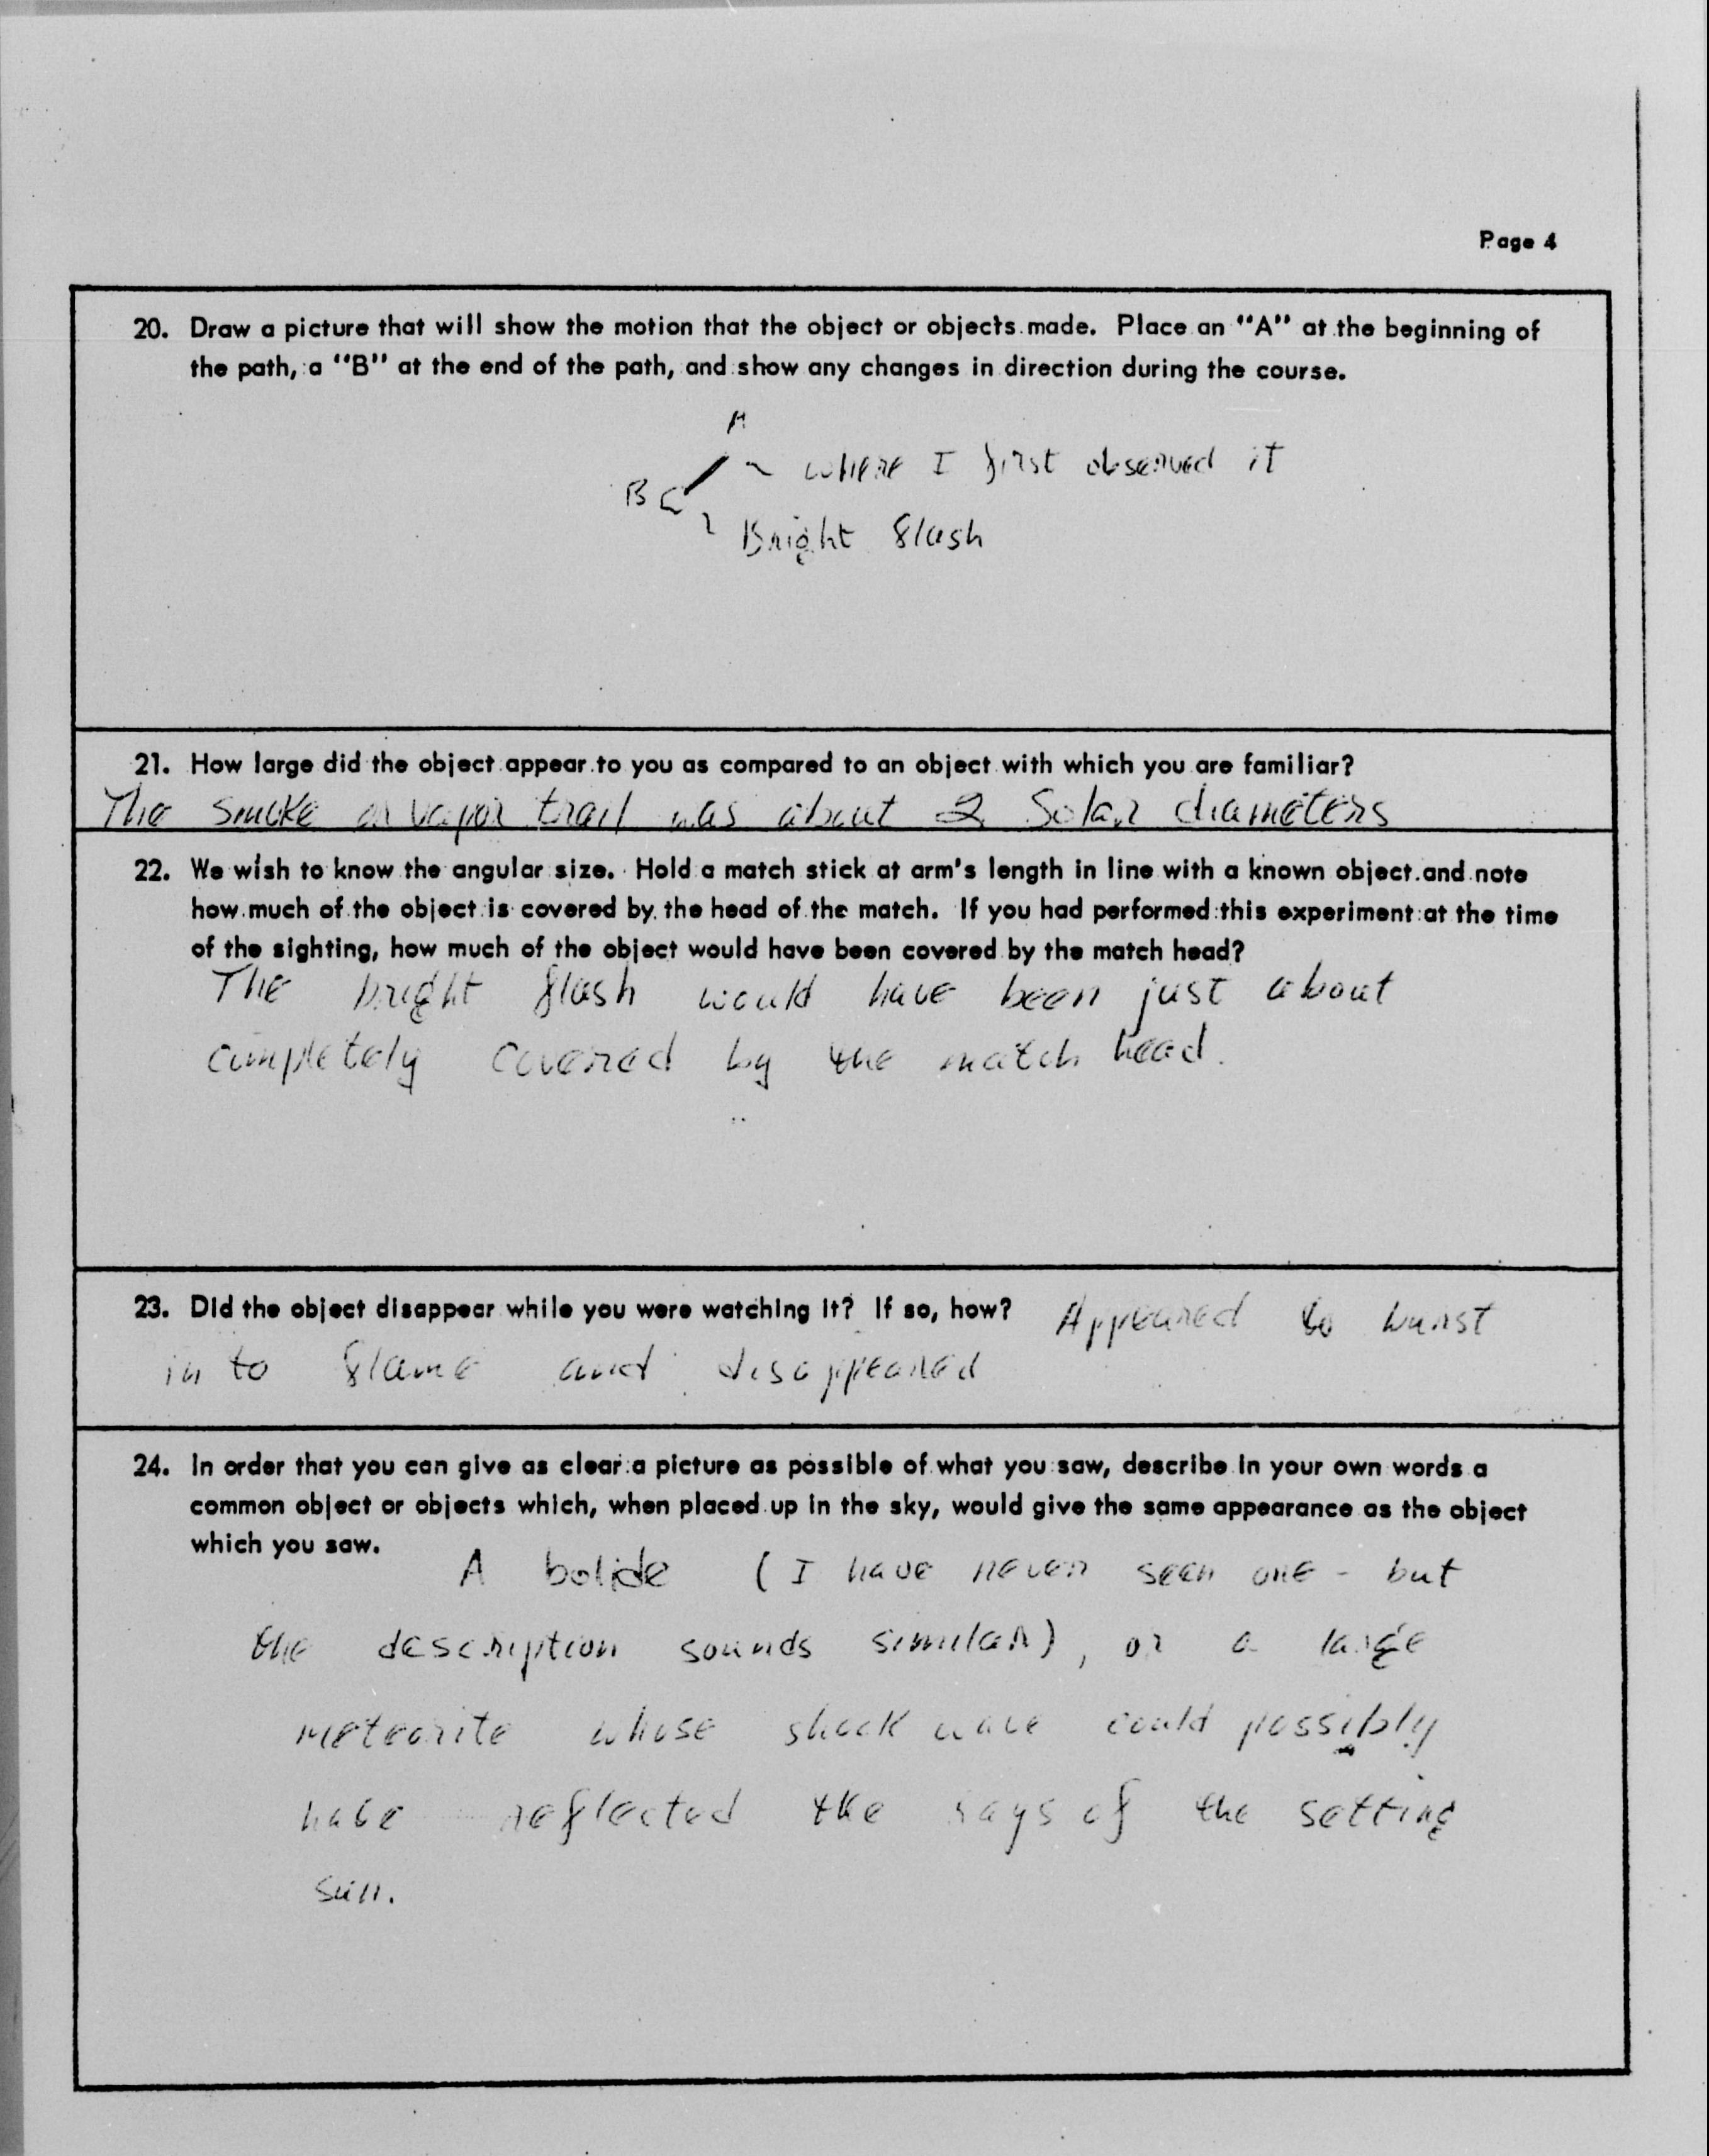 Page 4
20. Draw a picture that will show the motion that the object or objects made. Place an "A" at the beginning of
the path, a "B" at the end of the path, and show any changes in direction during the course.
A
where I first observed it
B
Bright flash
21. How large did the object appear to you as compared to an object with which you are familiar?
The smoke or vapor trail was about 2 Solar diameters
22. We wish to know the angular size. Hold a match stick at arm's length in line with a known object and note
how much of the object is covered by the head of the match. If you had performed this experiment at the time
of the sighting, how much of the object would have been covered by the match head?
The bright flash would have been just about
completely covered by the match head.
23. Did the object disappear while you were watching it? If so, how? Appeared to burst
in to flame and disappeared
24. In order that you can give as clear a picture as possible of what you saw, describe in your own words a
common object or objects which, when placed up in the sky, would give the same appearance as the object
which you saw. A bolide (I have never seen one - but
the description sounds similar), or a large
meteorite whose shock wave could possibly
have reflected the rays of the setting
sun.